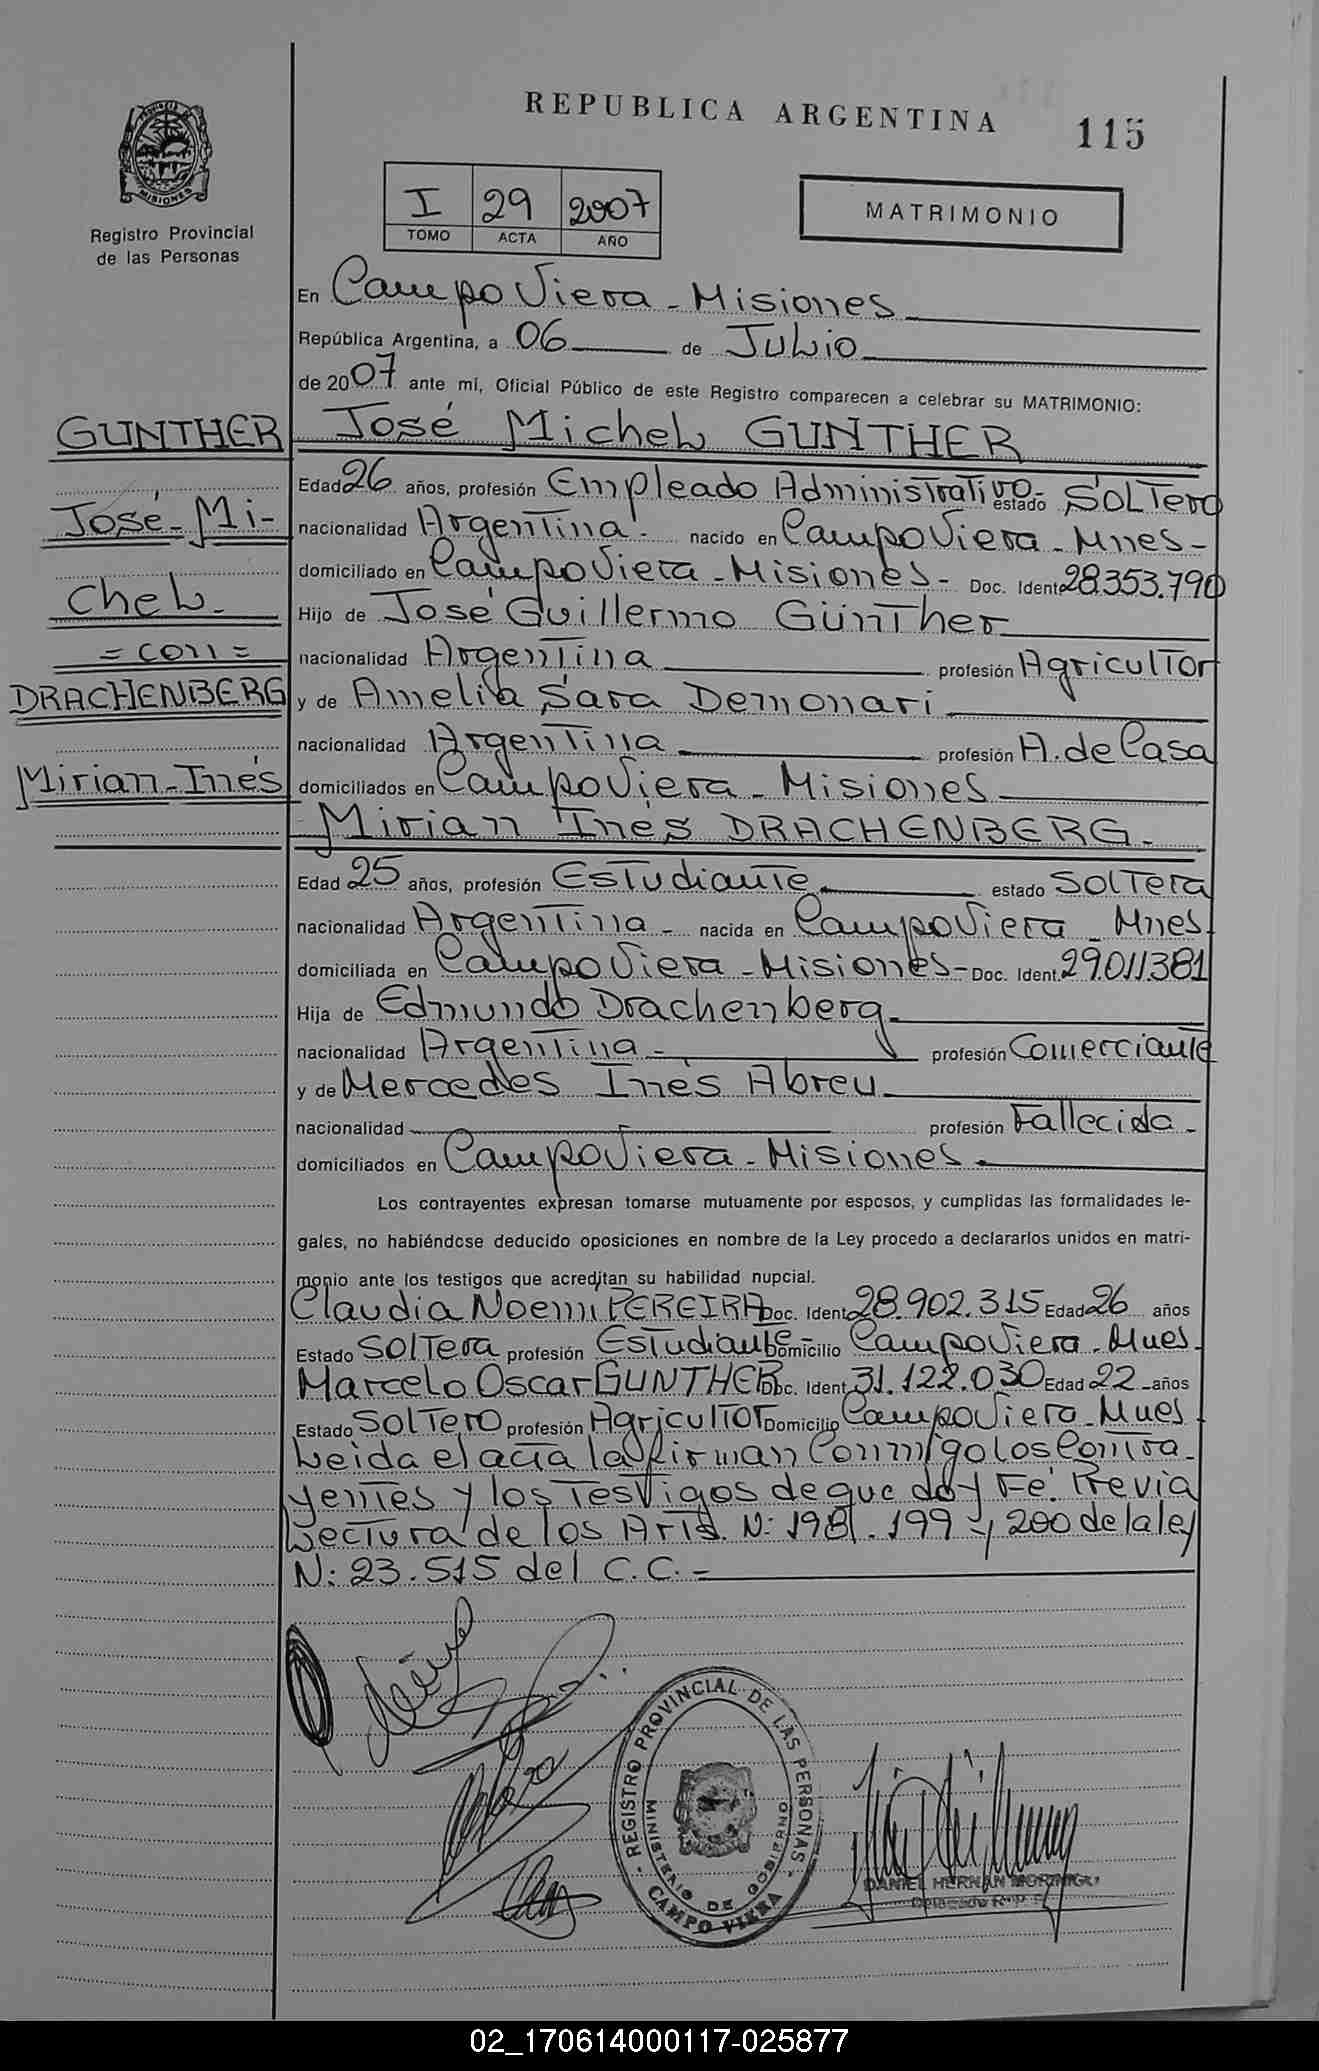 REPUBLICA ARGENTINA
115
MISIONES
Registro Provincial
de las Personas
I 29 2007
TOMO ACTA AÑO
MATRIMONIO
En Campo Viera - Misiones
República Argentina, a 06 de Julio
de 2007 ante mí, Oficial Público de este Registro comparecen a celebrar su MATRIMONIO:
GUNTHER
José - Mi-
chel.
= con =
DRACHENBERG
Mirian - Inés
José Michel GUNTHER
Edad 26 años, profesión Empleado Administrativo - estado Soltero
nacionalidad Argentina - nacido en Campo Viera - Mnes -
domiciliado en Campo Viera - Misiones - Doc. Ident 28.353.790
Hijo de José Guillermo Günther
nacionalidad Argentina profesión Agricultor
y de Amelia Sara Demonari
nacionalidad Argentina profesión A. de Casa
domiciliados en Campo Viera - Misiones
Mirian Inés DRACHENBERG -
Edad 25 años, profesión Estudiante estado Soltera
nacionalidad Argentina - nacida en Campo Viera - Mnes
domiciliada en Campo Viera - Misiones - Doc. Ident. 29.011.381
Hija de Edmundo Drachenberg
nacionalidad Argentina - profesión Comerciante
y de Mercedes Inés Abreu
nacionalidad profesión Fallecida -
domiciliados en Campo Viera - Misiones -
Los contrayentes expresan tomarse mutuamente por esposos, y cumplidas las formalidades le-
gales, no habiéndose deducido oposiciones en nombre de la Ley procedo a declararlos unidos en matri-
monio ante los testigos que acreditan su habilidad nupcial.
Claudia Noemi PEREIRA Doc. Ident 28.902.315 Edad 26 años
Estado Soltera profesión Estudiante - Domicilio Campo Viera - Mnes -
Marcelo Oscar GUNTHER Doc. Ident 31.122.030 Edad 22 - años
Estado Soltero profesión Agricultor Domicilio Campo Viera - Mnes
Leida el acta la firman conmigo los contra-
yentes y los testigos de que doy Fé. Previa
Lectura de los Arts. N: 198. 199 y 200 de la ley
N: 23.515 del C.C. -
REGISTRO PROVINCIAL DE LAS PERSONAS
MINISTERIO DE GOBIERNO
CAMPO VIERA
DANIEL HERNAN
Delegado R.P.
02_170614000117-025877